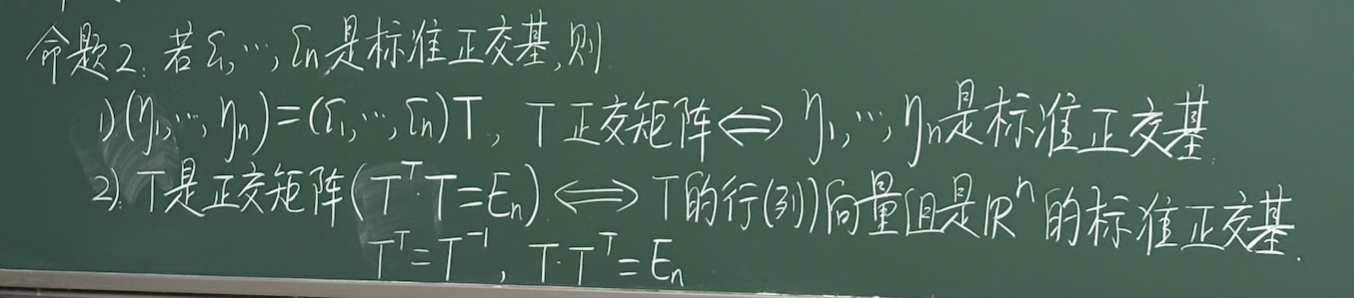 命题2. 若ε₁,…,εn是标准正交基,则
1)(η₁,…,ηn)=(ε₁,…,εn)T, T正交矩阵⇔η₁,…,ηn是标准正交基.
2). T是正交矩阵(Tᵀ·T=En)⇔T的行(列)向量组是ℝⁿ的标准正交基.
Tᵀ=T⁻¹, T·Tᵀ=En